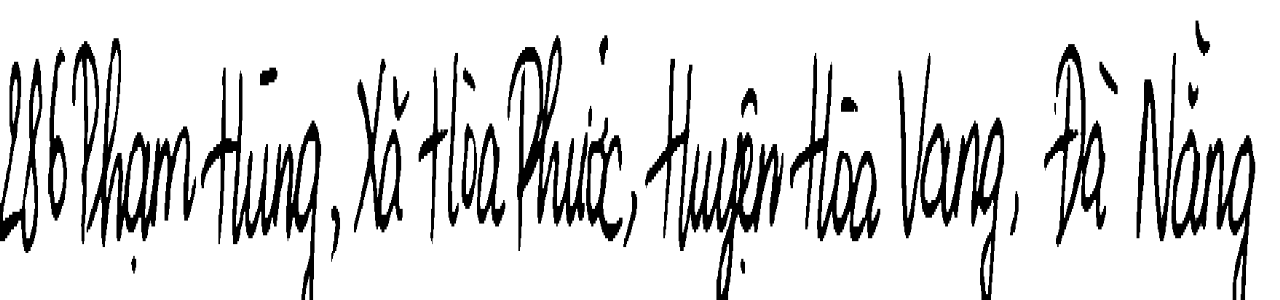 286 Phạm Hùng, Xã Hòa Phước, Huyện Hòa Vang, Đà Nẵng